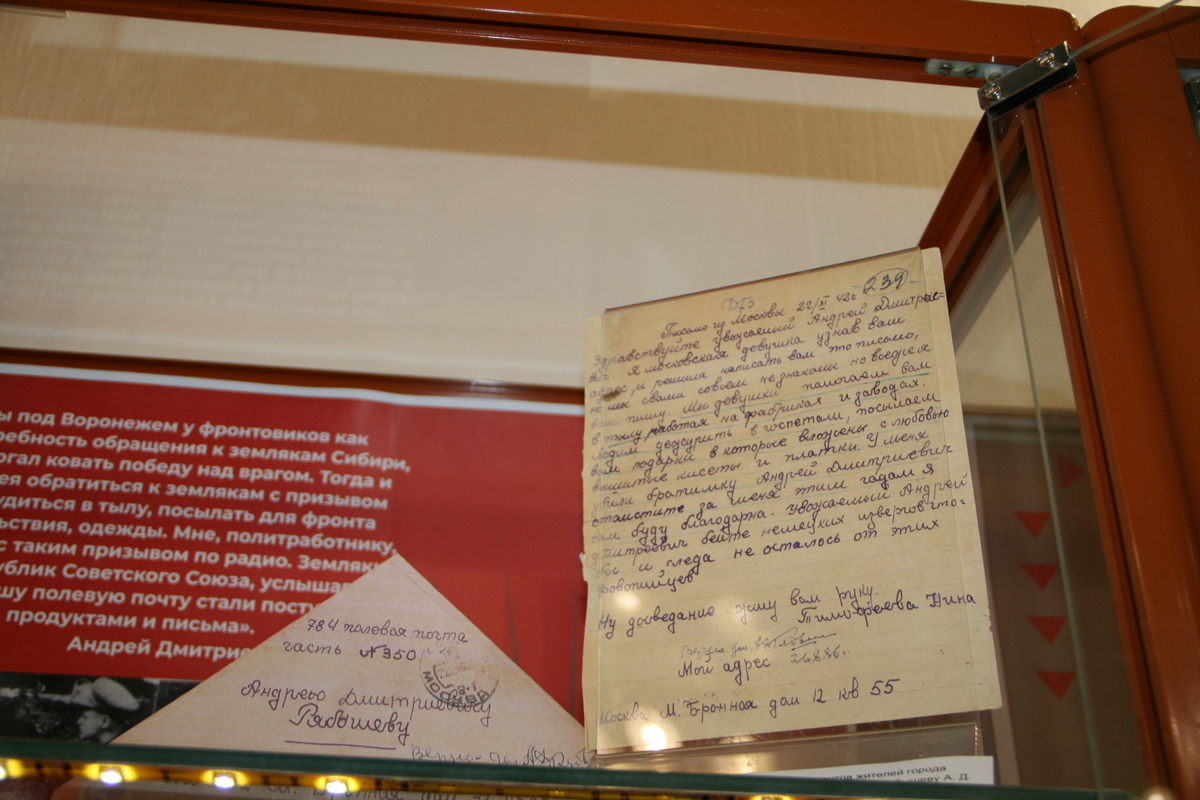 ы под Воронежем у фронтовиков как
ребность обращения к землякам Сибири,
огал ковать победу над врагом. Тогда и
ея обратиться к землякам с призывом
удиться в тылу, посылать для фронта
ьствия, одежды. Мне, политработнику,
с таким призывом по радио. Земляки
ублик Советского Союза, услышав
шу полевую почту стали посту
продуктами и письма».
Андрей Дмитрие
784 полевая почта
часть №350
МОСКВА
Андрею Дмитриевичу
Рябышеву
239
Письмо из Москвы 22/XI 42г
Здравствуйте уважаемый Андрей Дмитрие=
вич. Я московская девушка узнав ваш
адрес, и решила написать вам это письмо,
мы с вами совсем не знакомы но все
вам пишу. Мы девушки помогаем вам
в тылу работая на фабриках и заводах.
Ходим дежурить в госпетали, посылаем
вам подарки в которые вложены с любовью
вышитые кисеты и платки. У меня
убили братишку Андрей Дмитриевич
отомстите за меня этим гадам я
вам буду благодарна. Уважаемый Андрей
Дмитреевич бейте немецких извергов что=
бы и следа не осталось от этих
кровопийцев
Ну досведание жму вам руку.
Тимофеева Нина
Мой адрес
26.8.86г.
Москва М. Бронная дом 12 кв 55
нтов жителей города
бышеву А. Д.